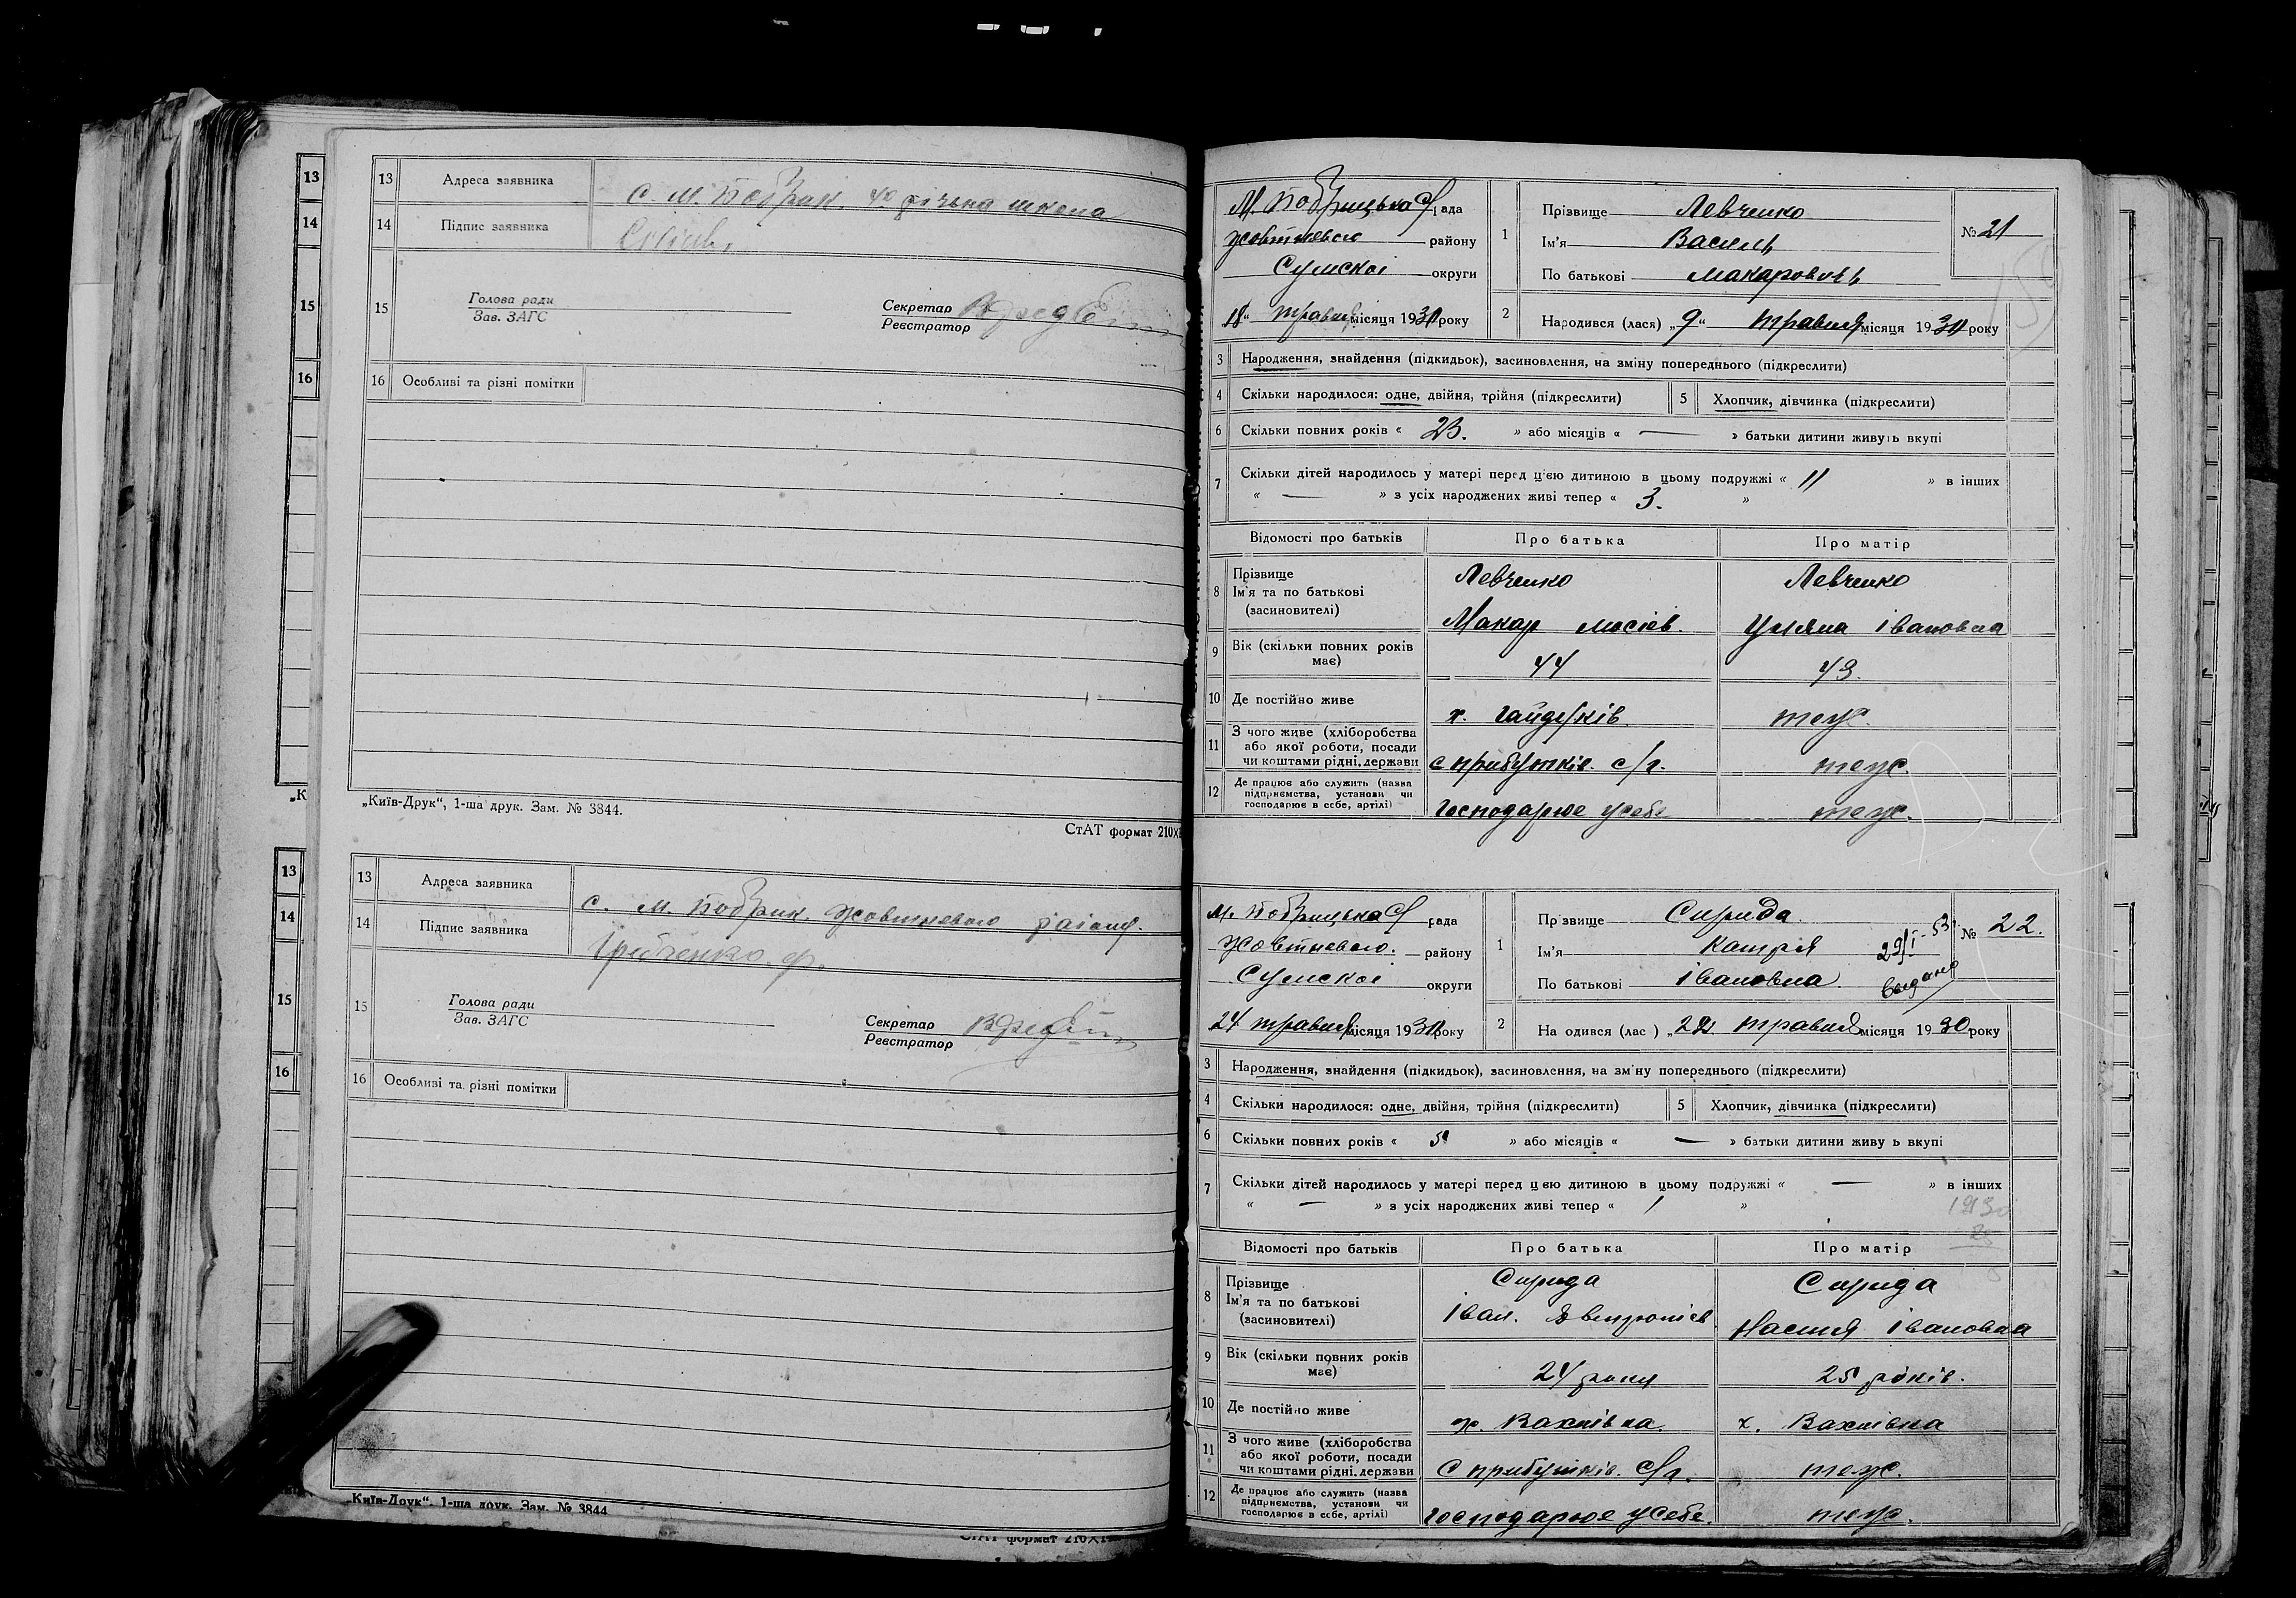 13
14
15
16
„К
13
14
15
16
13 Адреса заявника с. М. Бобрик. 4х річна школа
14 Підпис заявника
15 Голова ради
Зав. ЗАГС
Секретар
Реєстратор
16 Особливі та різні помітки
„Київ-Друк“, 1-ша друк. Зам. № 3844.
СтАТ формат 210Х
13 Адреса заявника с. М. Бобрик. Жовтневого району.
14 Підпис заявника
15 Голова ради
Зав. ЗАГС
Секретар
Реєстратор
16 Особливі та різні помітки
„Київ-Друк“, 1-ша друк. Зам. № 3844
СтАТ формат 210Х
М. Бобрицька с/рада
Жовтневого району
Сумскоі округи
18 “ травня місяця 1930 року
1 Прізвище Левченко
Ім'я Василь
По батькові Макарович
№ 21
2 Народився (лася) „ 9 “ травня місяця 1930 року
3 Народження, знайдення (підкидьок), засиновлення, на зміну попереднього (підкреслити)
4 Скільки народилося: одне, двійня, трійня (підкреслити) 5 Хлопчик, дівчинка (підкреслити)
6 Скільки повних років « 23. » або місяців « — » батьки дитини живуть вкупі
7 Скільки дітей народилось у матері перед цією дитиною в цьому подружжі « 11 » в інших
« — » з усіх народжених живі тепер « 3. »
Відомості про батьків Про батька Про матір
8 Прізвище
Ім'я та по батькові
(засиновителі)
Левченко Левченко
Макар Мосіев. Уляна івановна
9 Вік (скільки повних років має) 44 43.
10 Де постійно живе х. Гайдуків. теж.
11 З чого живе (хліборобства
або якої роботи, посади
чи коштами рідні, держави с прибутків. с/г. теж.
12 Де працює або служить (назва
підприємства, установи чи
господарює в себе, артілі) Господарює у себе теж.
М. Бобрицька с/рада
Жовтневого. району
Сумскоі округи
24 травня місяця 1930 року
1 Прізвище Сирида.
Ім'я Катря
По батькові івановна
29/I-53
выдано
№ 22.
2 На одився (лас ) „ 22 травня місяця 1930 року
3 Народження, знайдення (підкидьок), засиновлення, на зміну попереднього (підкреслити)
4 Скільки народилося: одне, двійня, трійня (підкреслити) 5 Хлопчик, дівчинка (підкреслити)
6 Скільки повних років « 5 » або місяців « — » батьки дитини живу ь вкупі
7 Скільки дітей народилось у матері перед цією дитиною в цьому подружжі « — » в інших
« — » з усіх народжених живі тепер « 1 »
1930
Відомості про батьків Про батька Про матір
8 Прізвище
Ім'я та по батькові
(засиновителі)
Сирида Сирида
Іван. Настя івановна
9 Вік (скільки повних років має) 24 роки 25 років.
10 Де постійно живе х. Вахнівка. х. Вахнівка
11 З чого живе (хліборобства
або якої роботи, посади
чи коштами рідні, держави С прибутків. С/г. теж.
12 Де працює або служить (назва
підприємства, установи чи
господарює в себе, артілі) Господарює у себе. теж.